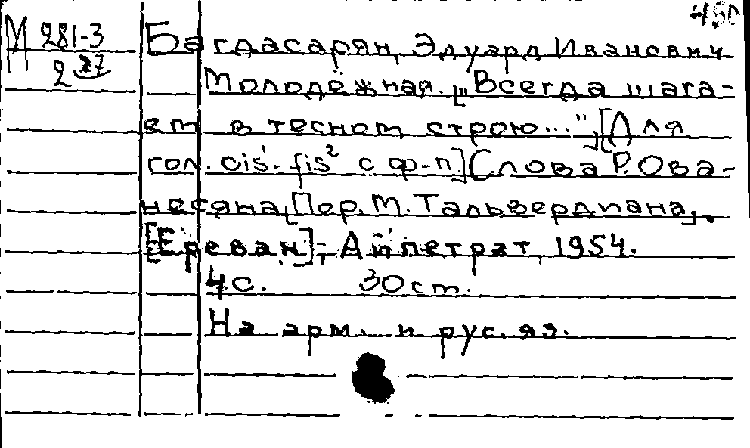 450
М 281-3 Багдасарян, Эдуард Иванович
2 27 Молодёжная. „Всегда шага-
ем в тесном строю...", [Для
гол. cis¹-fis² с ф-п] [Слова Р. Ова-
несяна, Пер. М. Тальвердиана].
[Ереван], Айпетрат, 1954.
4с. 30 ст.
На арм. и рус. яз.